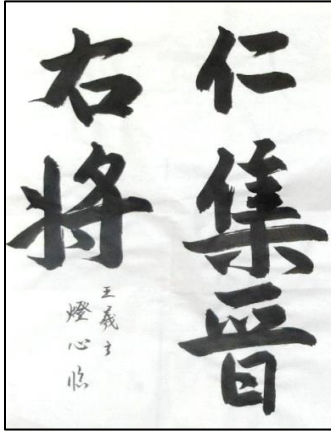 仁集晋
右将
王羲之
燈心临